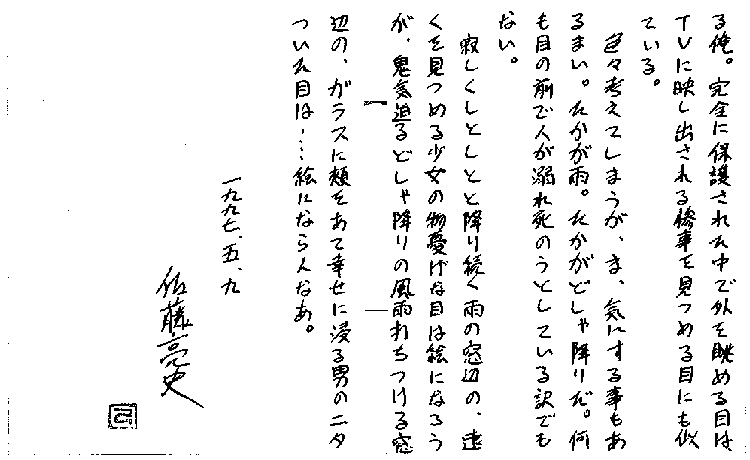 る俺。完全に保護された中で外を眺める目は、
TVに映し出される惨事を見つめる目にも似
ている。
色々考えてしまうが、ま、気にする事もあ
るまい。たかが雨。たかがどしゃ降りだ。何
も目の前で人が溺れ死のうとしている訳でも
ない。
寂しくしとしとと降り続く雨の窓辺の、遠
くを見つめる少女の物憂げな目は絵になろう
が、鬼気迫るどしゃ降りの風雨打ちつける窓
辺の、ガラスに頬をあて幸せに浸る男のニタ
ついた目は…絵にならんなあ。
一九九七、五、九
佐藤亮史